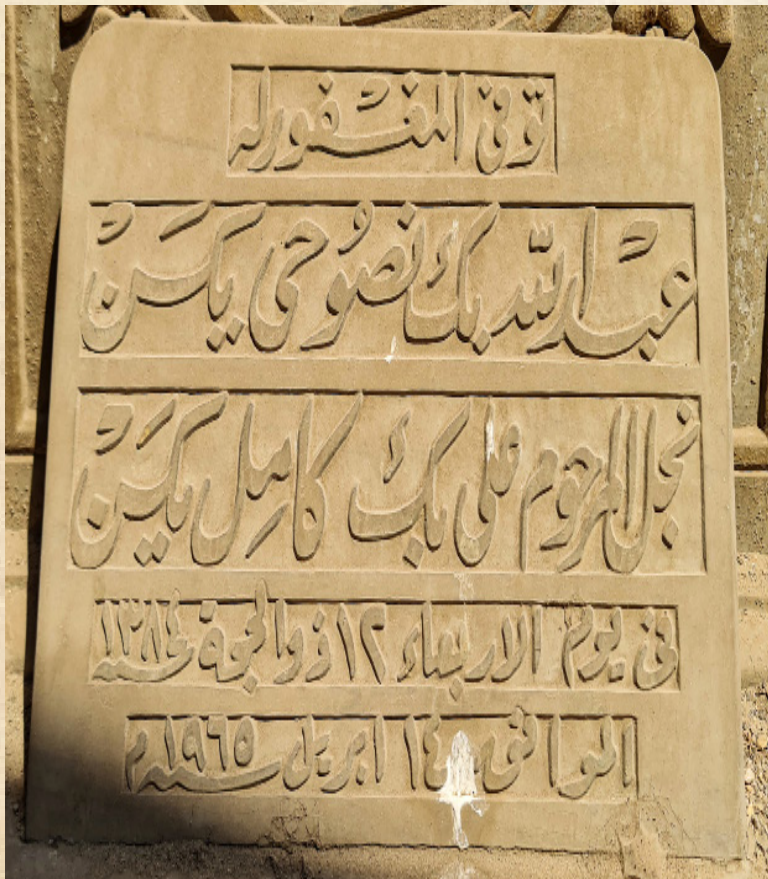 توفى المغفور له
عبد الله بك نصوحى يكن
نجل المرحوم على بك كامل يكن
فى يوم الاربعاء ١٢ ذو الحجة سنة ١٣٨٤
الموافق ١٤ ابريل سنة ١٩٦٥ م